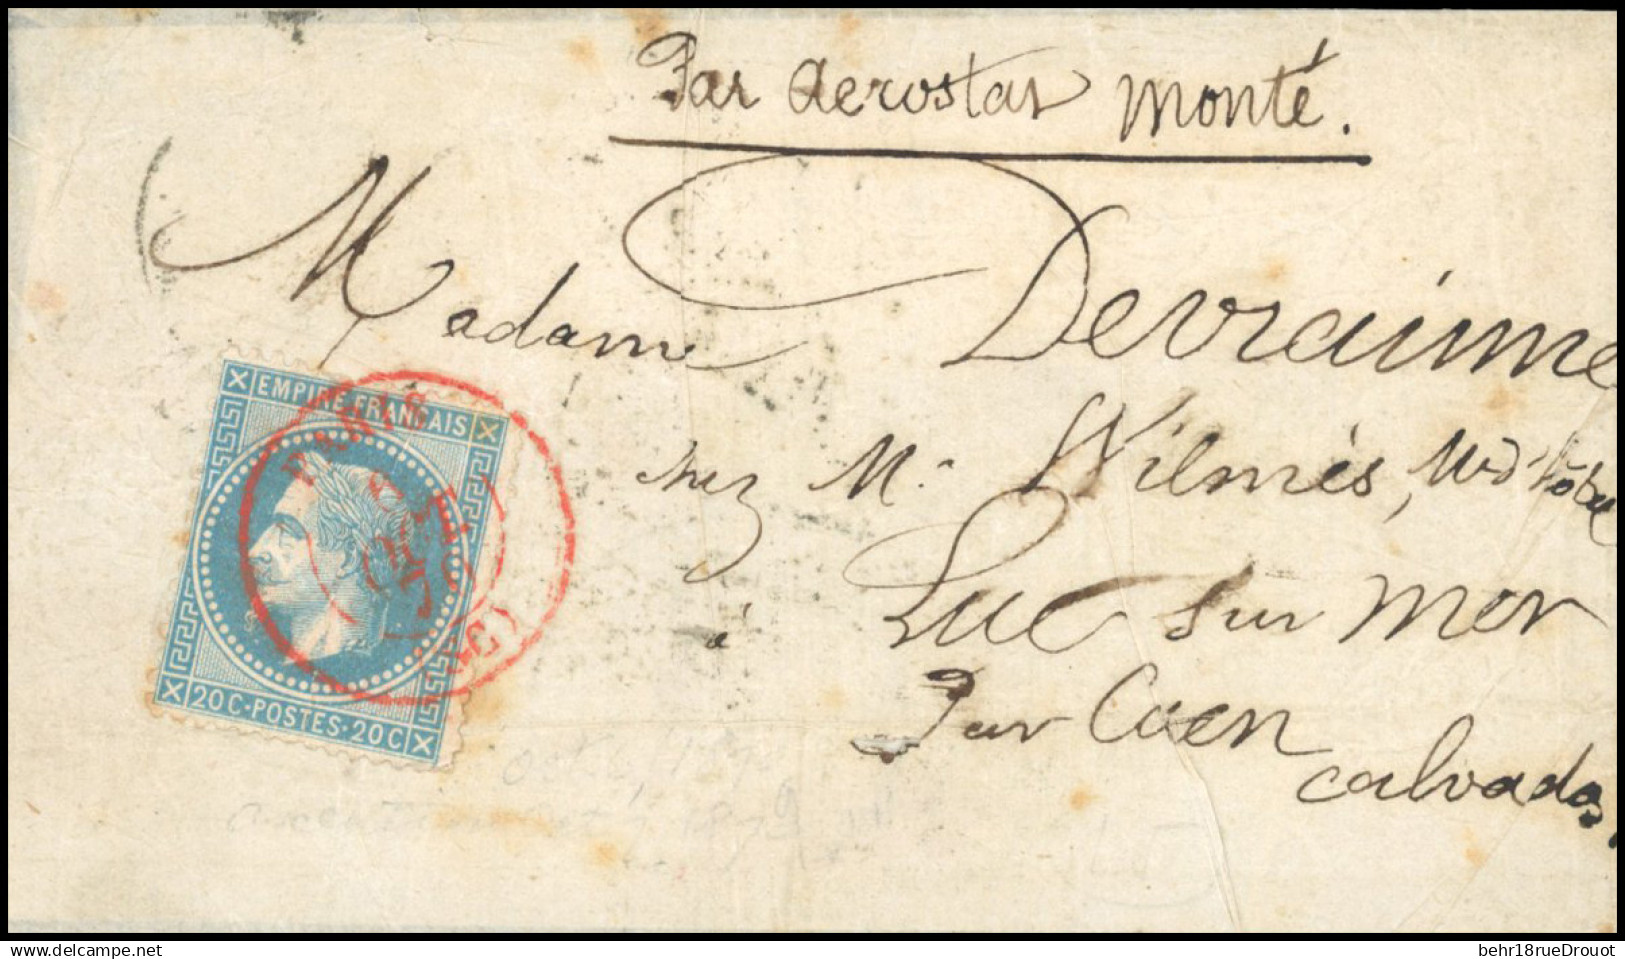 Par aerostat monté.
Madame Devraine
chez M. Wilmès,
à Luc sur mer
Par Caen
calvados
EMPIRE FRANÇAIS
20C·POSTES·20C
PARIS
OCT.
70
(SC)
delcampe.net
behr18rueDrouot